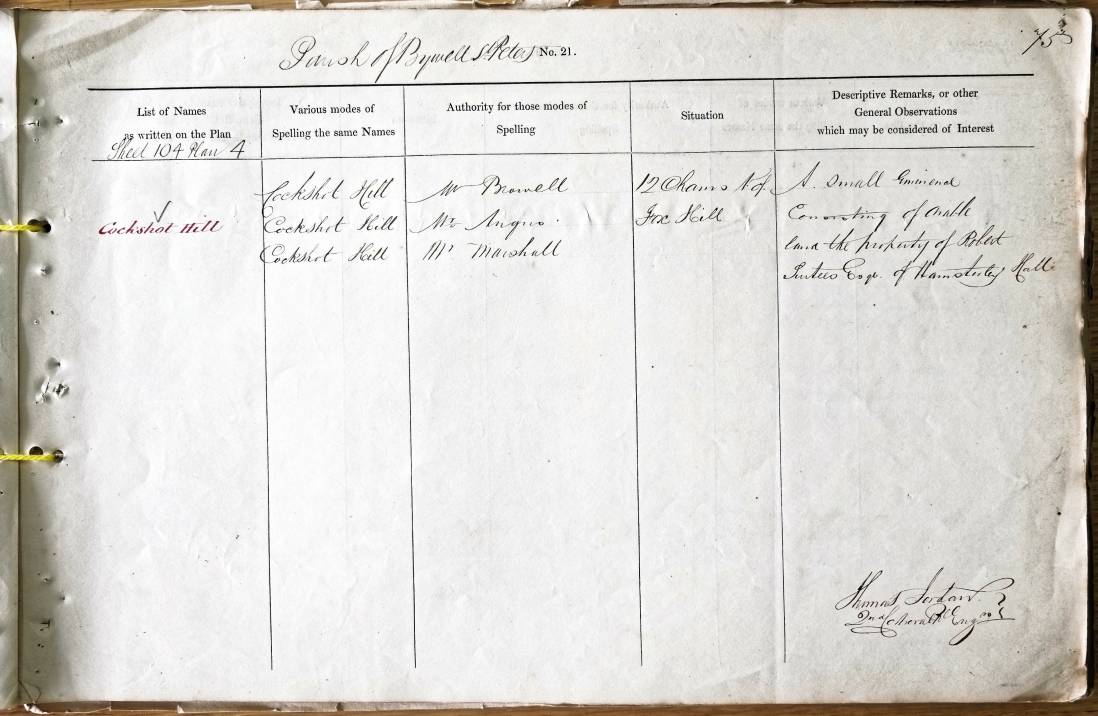 75
Parish of Bywell St Peters No. 21.
List of Names
as written on the Plan
Sheet 104 Plan 4
Various modes of
Spelling the same Names
Authority for those modes of
Spelling
Situation
Descriptive Remarks, or other
General Observations
which may be considered of Interest
Cockshot Hill
Cockshot Hill
Cockshot Hill
Cockshot Hill
Mr Browell
Mr Angus
Mr Marshall
12 Chains N of
Fox Hill
A Small Eminence
Consisting of arable
land the property of Robert
Surtees Esqr. of Hamsterley Hall
Thomas Jordan
2nd Corporal Rl Engrs